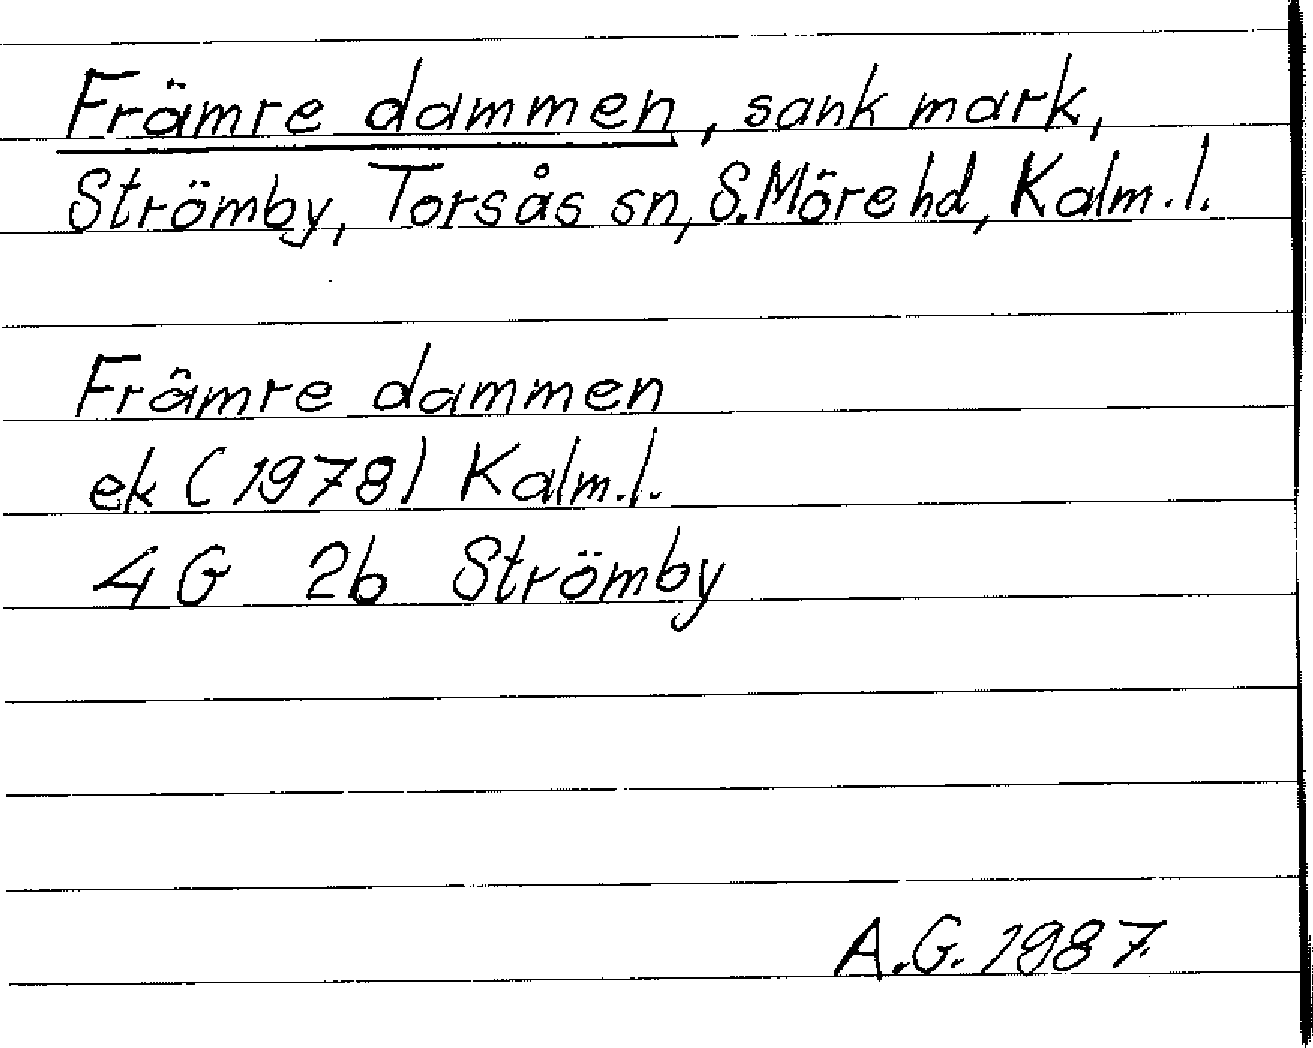 Främre dammen, sank mark,
Strömby, Torsås sn, S.Möre hd, Kalm.l.
Främre dammen
ek (1978) Kalm.l.
4G 2b Strömby
A.G. 1987